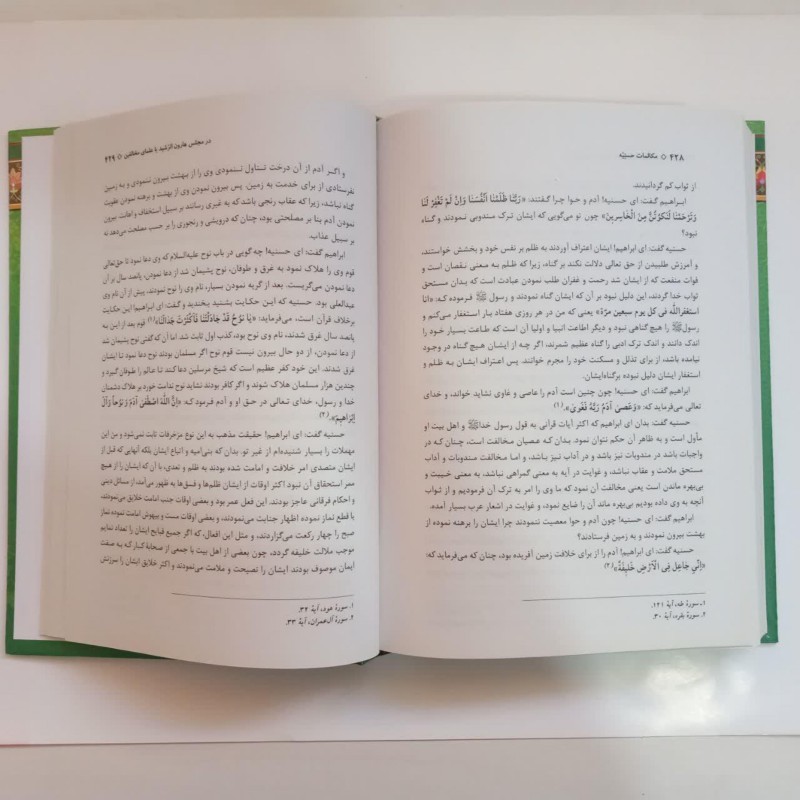 ۴۲۸ ◇ مکالمات حسنیّه
از ثواب کم گردانیدند.
ابراهیم گفت: ای حسنیه! آدم و حوا چرا گفتند: «رَبَّنَا ظَلَمْنَا أَنْفُسَنَا وَإِنْ لَمْ تَغْفِرْ لَنَا
وَتَرْحَمْنَا لَنَكُونَنَّ مِنَ الْخَاسِرِينَ» چون تو می‌گویی که ایشان ترک مندوبی نمودند و گناه
نبود؟
حسنیه گفت: ای ابراهیم! ایشان اعتراف آوردند به ظلم بر نفس خود و بخشش خواستند،
و آمرزش طلبیدن از حق تعالی دلالت نکند بر گناه، زیرا که ظلم به معنی نقصان است و
فوات منفعت که از ایشان صادر شد رحمت و غفران طلب نمودن عبادت است که بدان مستحق
ثواب خدا گردند، این دلیل نبود بر آن که ایشان گناه نمودند و رسول ﷺ فرموده که: «انا
استغفرالله فی کل یوم سبعین مرّة» یعنی که من در هر روزی هفتاد بار استغفار می‌کنم و
رسول ﷺ را هیچ گناهی نبود و دیگر اطاعت انبیا و اولیا آن است که طاعت بسیار خود را
اندک دانند و اندک ترک ادبی را گناه عظیم شمرند، اگر چه از ایشان هیچ گناه در وجود
نیامده باشد، از برای تذلل و مسکنت خود را مجرم خوانند. پس اعتراف ایشان به ظلم و
استغفار ایشان دلیل نبوده برگناه‌ایشان.
ابراهیم گفت: ای حسنیه! چون چنین است آدم را عاصی و غاوی نشاید خواند، و خدای
تعالی می‌فرماید که: «وَعَصَىٰ آدَمُ رَبَّهُ فَغَوَىٰ».(۱)
حسنیه گفت: بدان ای ابراهیم که اکثر آیات قرآنی به قول رسول خدا ﷺ و اهل بیت او
مأول است و به ظاهر آن حکم نتوان نمود. بدان که عصیان مخالفت است، چنان که در
واجبات باشد در مندوبات نیز باشد، و در آداب نیز باشد، و اما مخالفت مندوبات و آداب
مستحق ملامت و عقاب نباشد، و غوایت در آیه به معنی گمراهی نباشد، به معنی خیبت و
بی‌بهره ماندن است یعنی مخالفت آن نمود که ما وی را امر به ترک آن فرمودیم و از ثواب
آنچه به وی داده بودیم بی‌بهره ماند آن را ضایع نمود، و غوایت در اشعار عرب بسیار آمده.
ابراهیم گفت: ای حسنیه! چون آدم و حوا معصیت ننمودند چرا ایشان را برهنه نموده از
بهشت بیرون نمودند و به زمین فرستادند؟
حسنیه گفت: ای ابراهیم! آدم را از برای خلافت زمین آفریده بود، چنان که می‌فرماید که:
«إِنِّي جَاعِلٌ فِي الْأَرْضِ خَلِيفَةً».(۲)
۱ـ سورهٔ طه، آیهٔ ۱۲۱.
۲. سورهٔ بقره، آیهٔ ۳۰.
در مجلس هارون الرّشید با علمای مخالفین ◇ ۴۲۹
و اگر آدم از آن درخت تناول ننمودی وی را از بهشت بیرون ننمودی و به زمین
نفرستادی از برای خدمت به زمین. پس بیرون نمودن وی از بهشت و برهنه نمودن عقوبت
گناه نباشد، زیرا که عقاب رنجی باشد که به غیری رسانند بر سبیل استخفاف و اهانت. بیرون
نمودن آدم بنا بر مصلحتی بود، چنان که درویشی و رنجوری را بر حسب مصلحت می‌دهد نه
بر سبیل عذاب.
ابراهیم گفت: ای حسنیه! چه گویی در باب نوح علیه‌السلام که وی دعا نمود تا حق‌تعالی
قوم وی را هلاک نمود به غرق و طوفان، نوح پشیمان شد از دعا نمودن، پانصد سال بر آن
دعا نمودن می‌گریست. بعد از گریه نمودن بسیار، نام وی را نوح نمودند، پیش از آن نام وی
عبدالعلی بود. حسنیه که این حکایت بشنید بخندید و گفت: ای ابراهیم! این حکایت
برخلاف قرآن است، می‌فرماید: «يَا نُوحُ قَدْ جَادَلْتَنَا فَأَكْثَرْتَ جِدَالَنَا»(۱) قوم او از این به
پانصد سال غرق شدند، نام وی نوح بود، کذب اول ثابت شد. اما آن که گفتی نوح پشیمان شد
از دعا نمودن، از دو حال بیرون نیست قوم نوح اگر مسلمانان بودند نوح دعا نمود تا ایشان
غرق شدند. این خود کفر عظیم است که شیخ مرسلین دعا کند تا عالم را طوفان گیرد و
چندین هزار مسلمان هلاک شوند و اگر کافر بودند نشاید نوح ندامت خورد بر هلاک دشمنان
خدا و رسول، خدای تعالی در حق او و آدم فرمود که: «إِنَّ اللَّهَ اصْطَفَىٰ آدَمَ وَنُوحاً وَآلَ
إِبْرَاهِيمَ».(۲)
حسنیه گفت: ای ابراهیم! حقیقت مذهب به این نوع مزخرفات ثابت نمی‌شود و من این
مهملات را بسیار شنیده‌ام از غیر تو. بدان که بنی‌امیه و اتباع ایشان بلکه آنهایی که قبل از
ایشان متصدی امر خلافت و امامت شده بودند به ظلم و تعدی، با آن که ایشان را از هیچ
ممر استحقاق آن نبود اکثر اوقات از ایشان ظلم‌ها و فسق‌ها به ظهور می‌آمد، از مسائل دینی
و احکام فرقانی عاجز بودند. این فعل عمر بود و بعضی اوقات جنب امامت خلایق می‌نمودند،
یا قطع نماز نموده اظهار جنابت می‌نمودند، و بعضی اوقات مست و بیهوش امامت نموده نماز
صبح را چهار رکعت می‌گزاردند، و مثل این افعال، که اگر جمیع قبایح ایشان را تعداد نمایم
موجب ملالت خلیفه گردد، چون بعضی از اهل بیت با جمعی از صحابهٔ کبار که به صفت
ایمان موصوف بودند ایشان را نصیحت و ملامت می‌نمودند و اکثر خلایق ایشان را سرزنش
۱. سورهٔ هود، آیهٔ ۳۲.
۲. سورهٔ آل‌عمران، آیهٔ ۳۳.